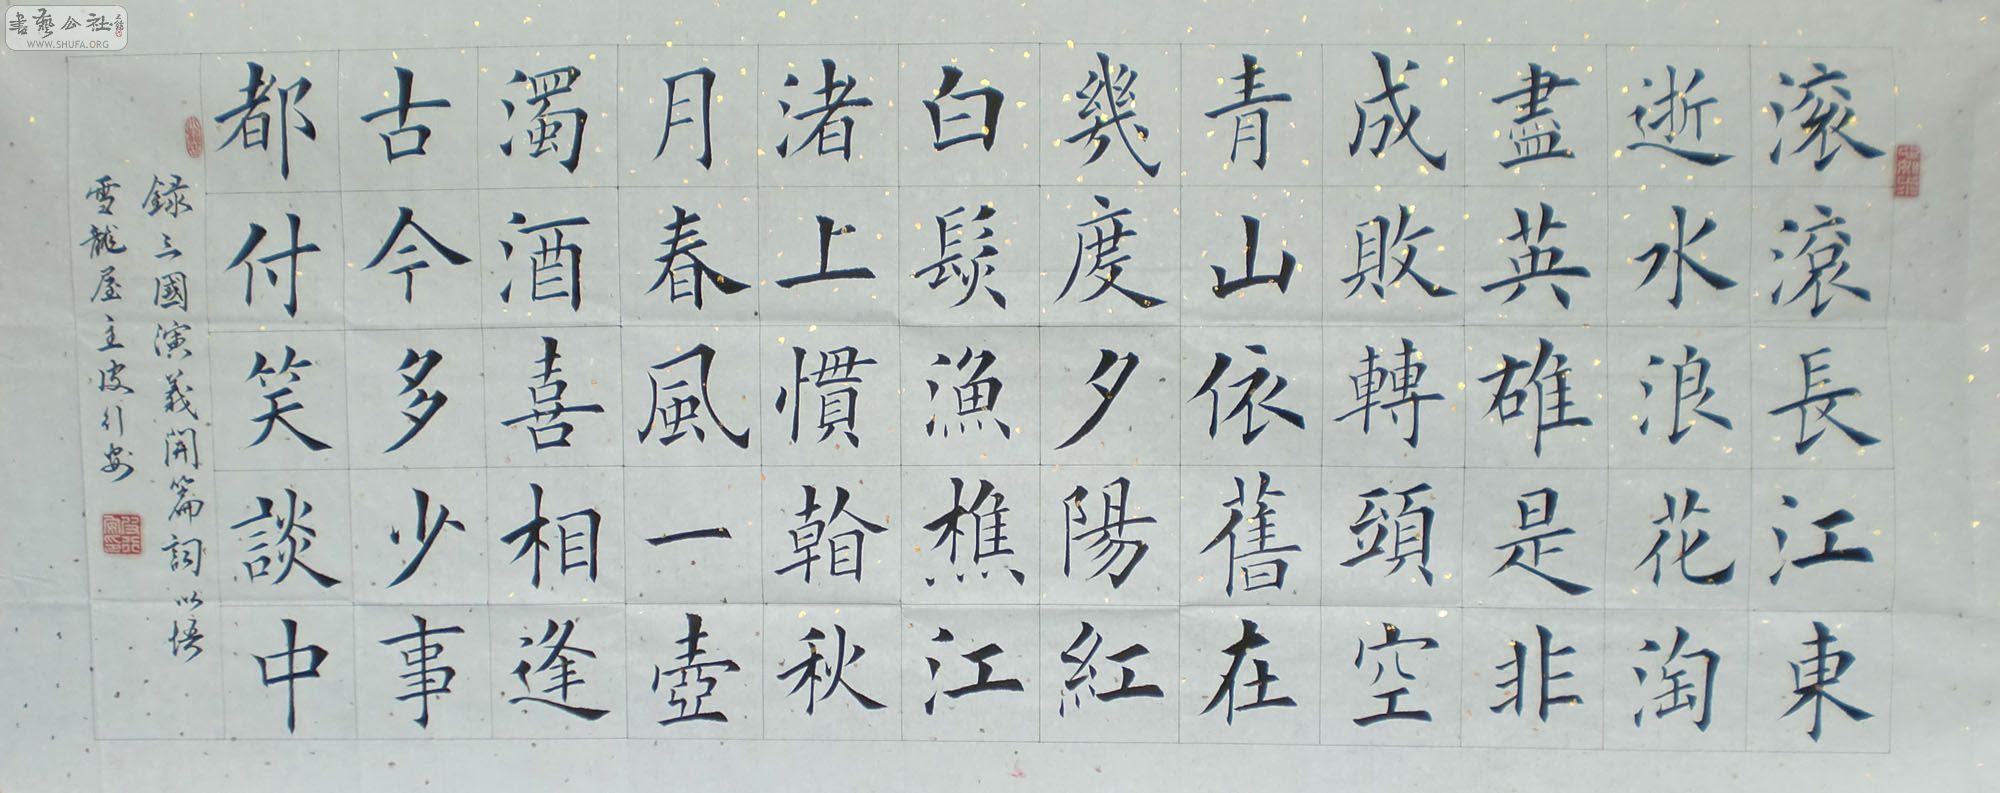 滚滾長江東
逝水浪花淘
盡英雄是非
成敗轉頭空
青山依舊在
幾度夕陽紅
白髮漁樵江
渚上慣翰秋
月春風一壺
濁酒喜相逢
古今多少事
都付笑談中
録三國演義開篇詞以悟
雪龍屋主皮行安
書藝公社
WWW.SHUFA.ORG